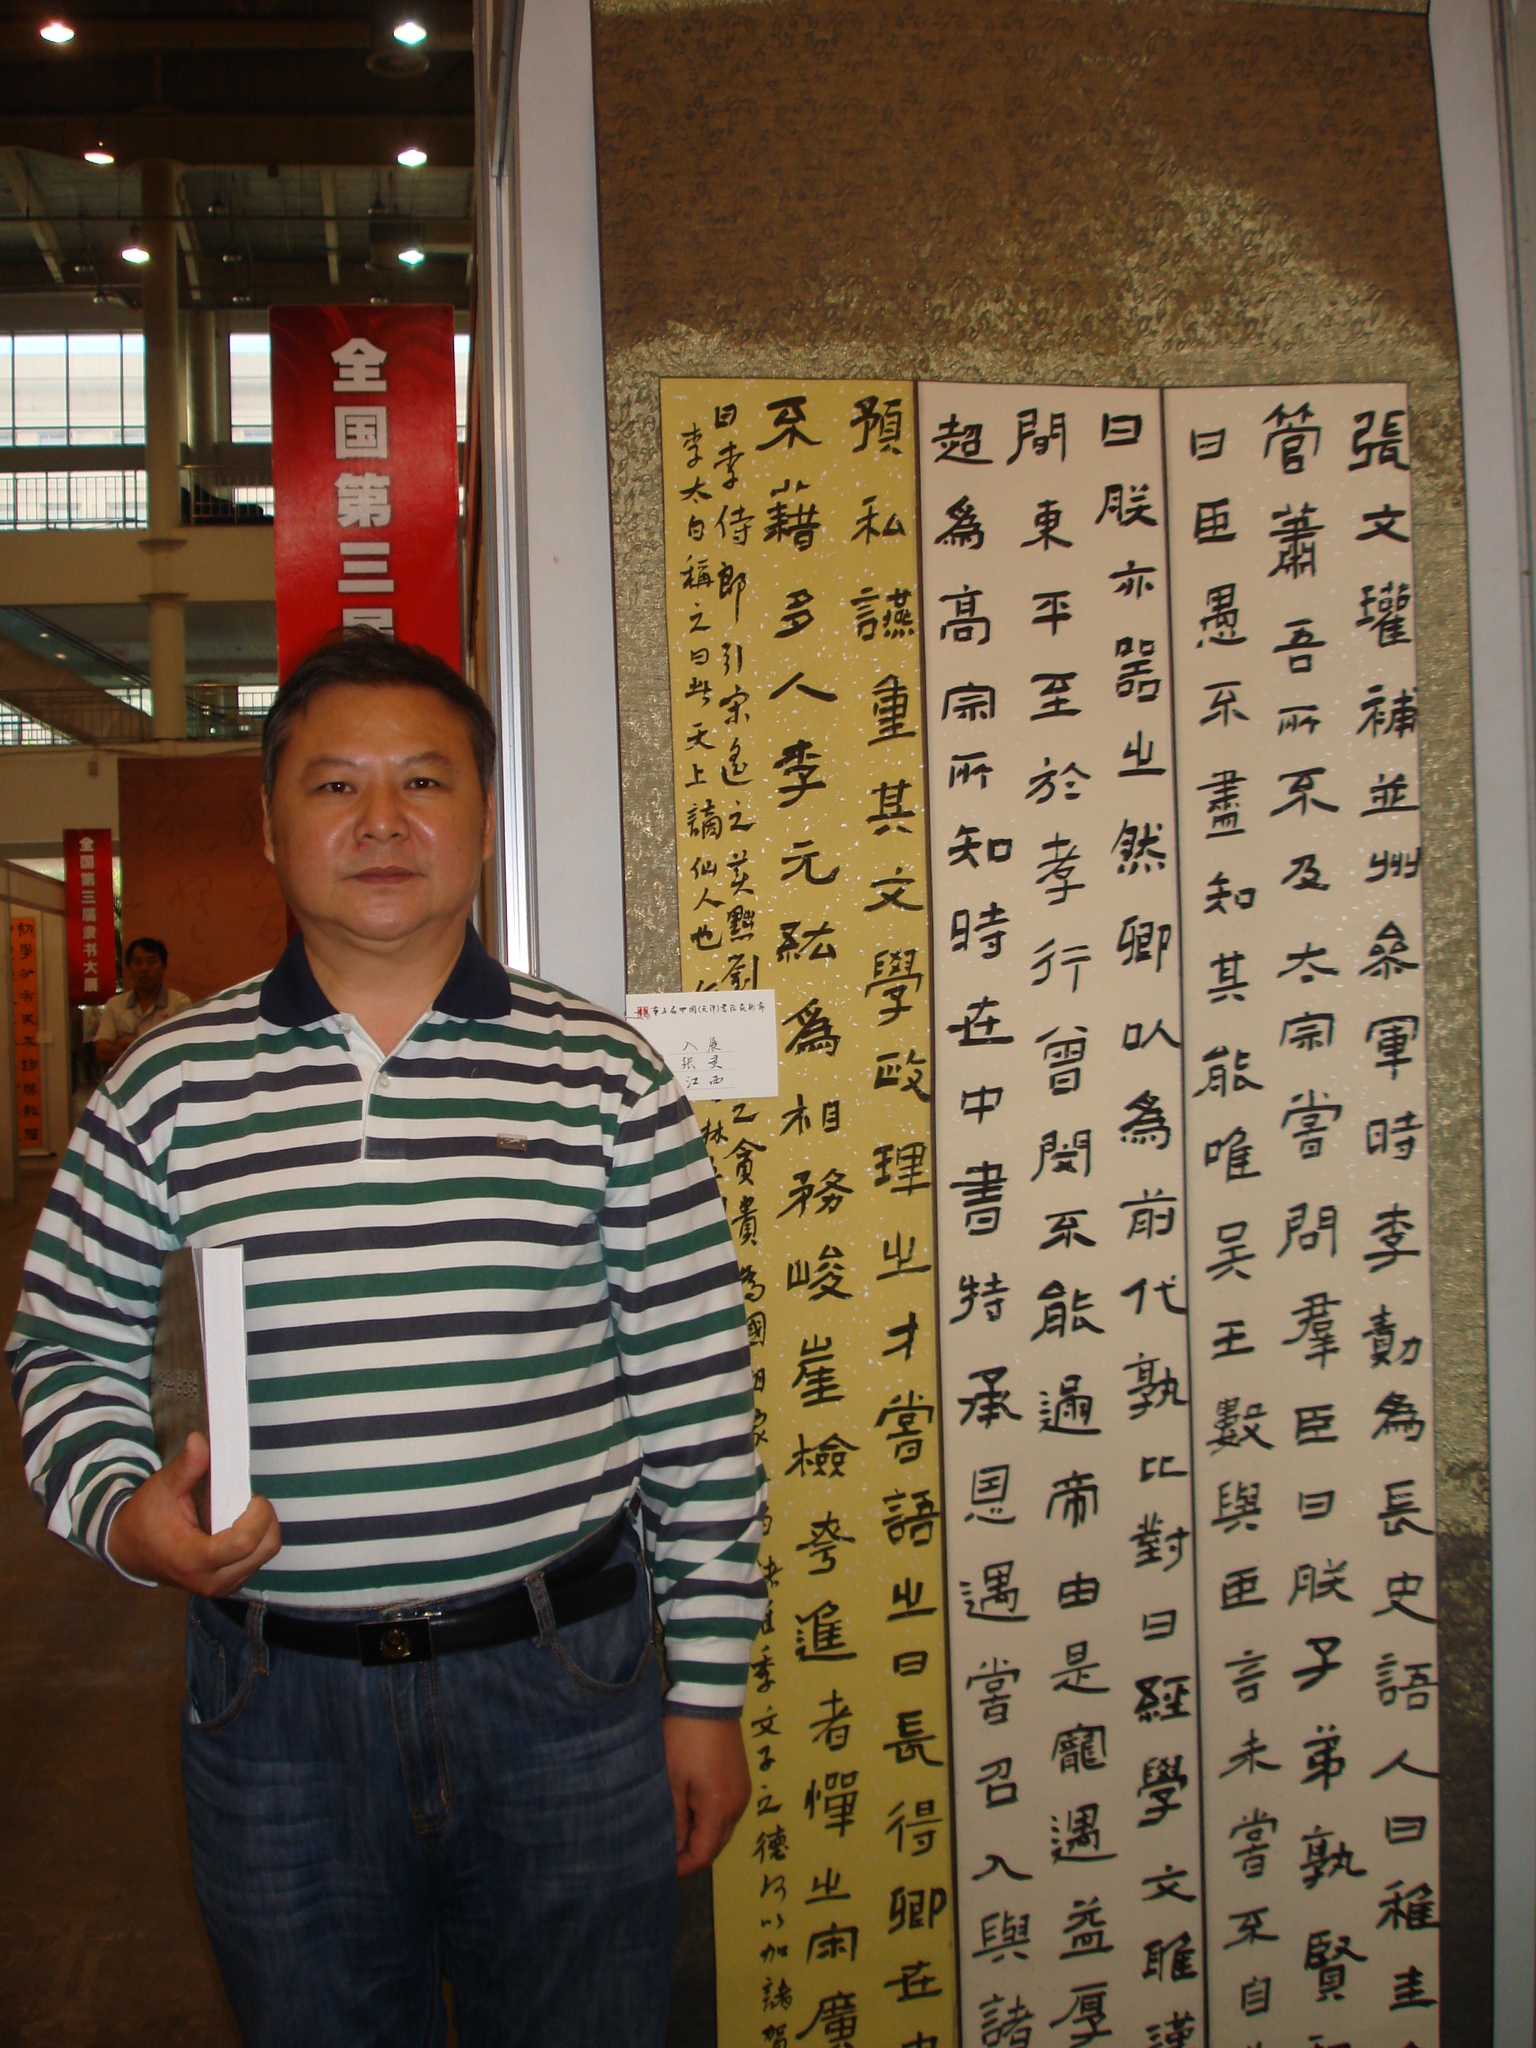 全国第三届
全国第三届隶书大展
張文瓘補並州參軍時李勣為長史語人曰稚圭
管蕭吾所不及太宗嘗問羣臣曰朕子弟孰賢
曰臣愚不盡知其能唯吴王數與臣言未嘗不自
曰朕亦器之然卿以為前代孰比對曰經學文雅漢
間東平至於孝行曾閔不能過帝由是寵遇益厚
超為高宗所知時在中書特承恩遇嘗召入與諸
預私讌重其文學政理之才嘗語之曰長得卿在中
不藉多人李元紘為相務峻崖檢夸進者憚之宋廣
目李侍郎引宋遙之
貪貴為國相家
季文子之德何以加諸賀
李太白稱之曰此天上謫仙人也
第五届中国(天津)書法艺术节
入展
张灵
江西